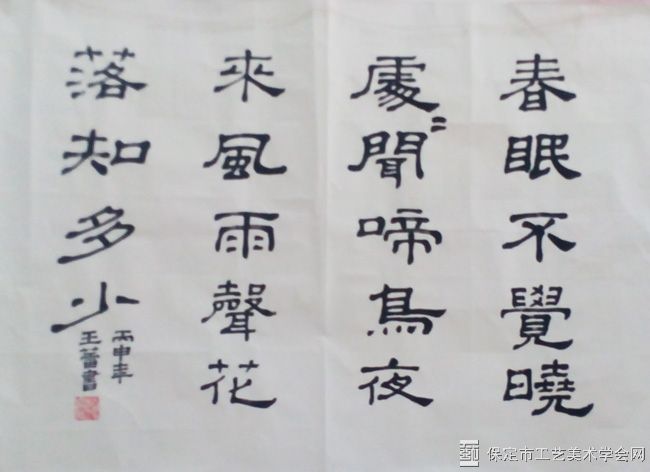 春眠不覺曉
處〻聞啼鳥夜
來風雨聲花
落知多少
丙申年
王蕾書
保定市工艺美术学会网